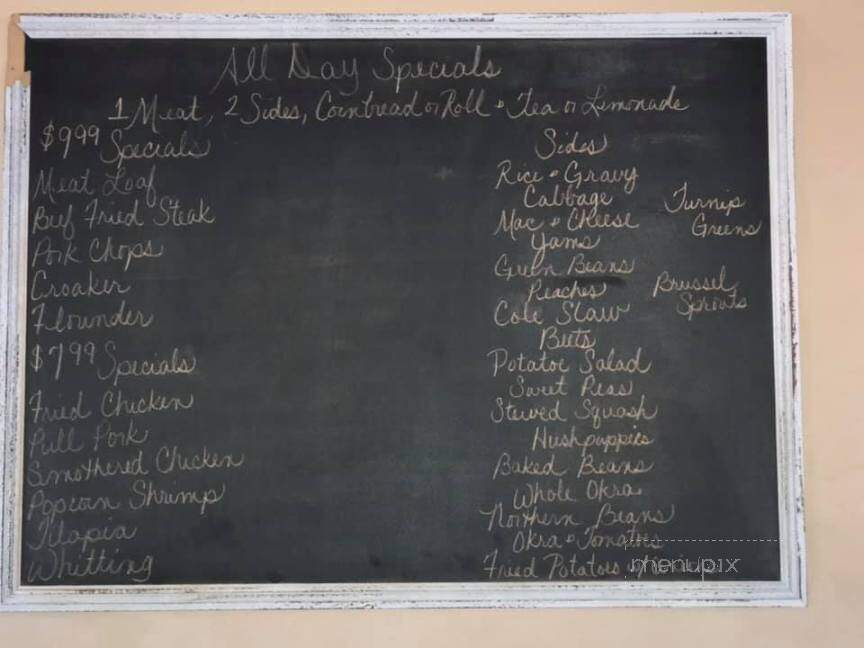 All Day Specials
1 Meat, 2 Sides, Cornbread or Roll & Tea or Lemonade
$9.99 Specials
Meat Loaf
Beef Fried Steak
Pork Chops
Croaker
Flounder
$7.99 Specials
Fried Chicken
Pull Pork
Smothered Chicken
Popcorn Shrimp
Tilapia
Whitting
Sides
Rice & Gravy
Cabbage
Mac & Cheese
Yams
Green Beans
Peaches
Cole Slaw
Beets
Potatoe Salad
Sweet Peas
Stewed Squash
Hushpuppies
Baked Beans
Whole Okra
Northern Beans
Okra & Tomatoes
Fried Potatoes
Turnip
Greens
Brussel
Sprouts
menupix